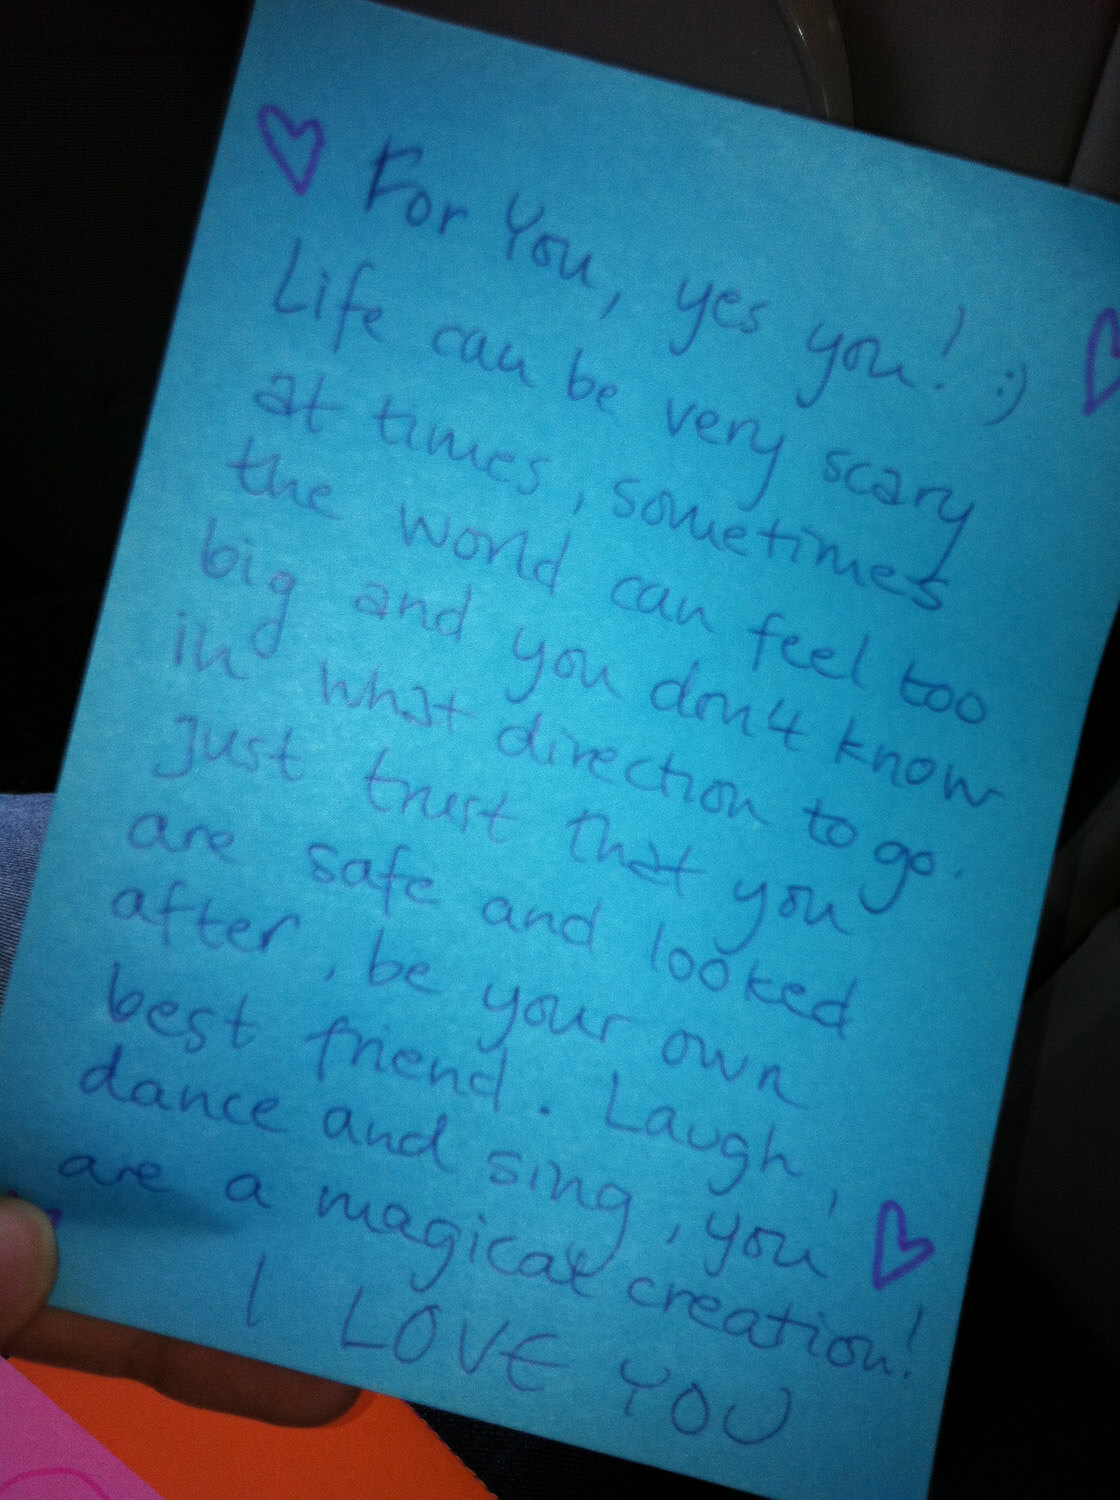 For You, yes you! :)
Life can be very scary
at times, sometimes
the world can feel too
big and you don't know
in what direction to go.
Just trust that you
are safe and looked
after, be your own
best friend. Laugh,
dance and sing, you
are a magical creation!
I LOVE YOU